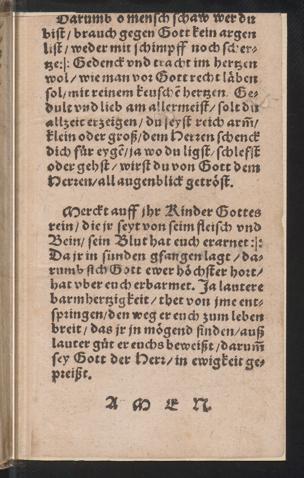 Darumb o mensch schaw wer du
bist / brauch gegen Gott kein argen
list / weder mit schimpff noch scher-
tze :|: Gedenck vnd tracht im hertzen
wol / wie man vor Gott recht låben
sol / mit reinem keuschē hertzen. Ge-
dult vnd lieb am allermeist / solt du
allzeit erzeigen / du seyst reich arm /
klein oder groß / dem Herren schenck
dich für eygē / ja wo du ligst / schlefst
oder gehst / wirst du von Gott dem
Herren / all augenblick getröst.
Merckt auff jhr Kinder Gottes
rein / die jr seyt von seim fleisch vnd
Bein / sein Blut hat euch erarnet :|:
Da jr in sünden gfangen lagt / da-
rumb sich Gott ewer höchster hort /
hat vber euch erbarmet. Ja lautere
barmhertzigkeit / thet von jme ent-
springen / den weg er euch zum leben
breit / das jr jn mögend finden / auß
lauter gůt er euchs beweißt / darum̄
sey Gott der Herr / in ewigkeit ge-
preißt.
A M E N.